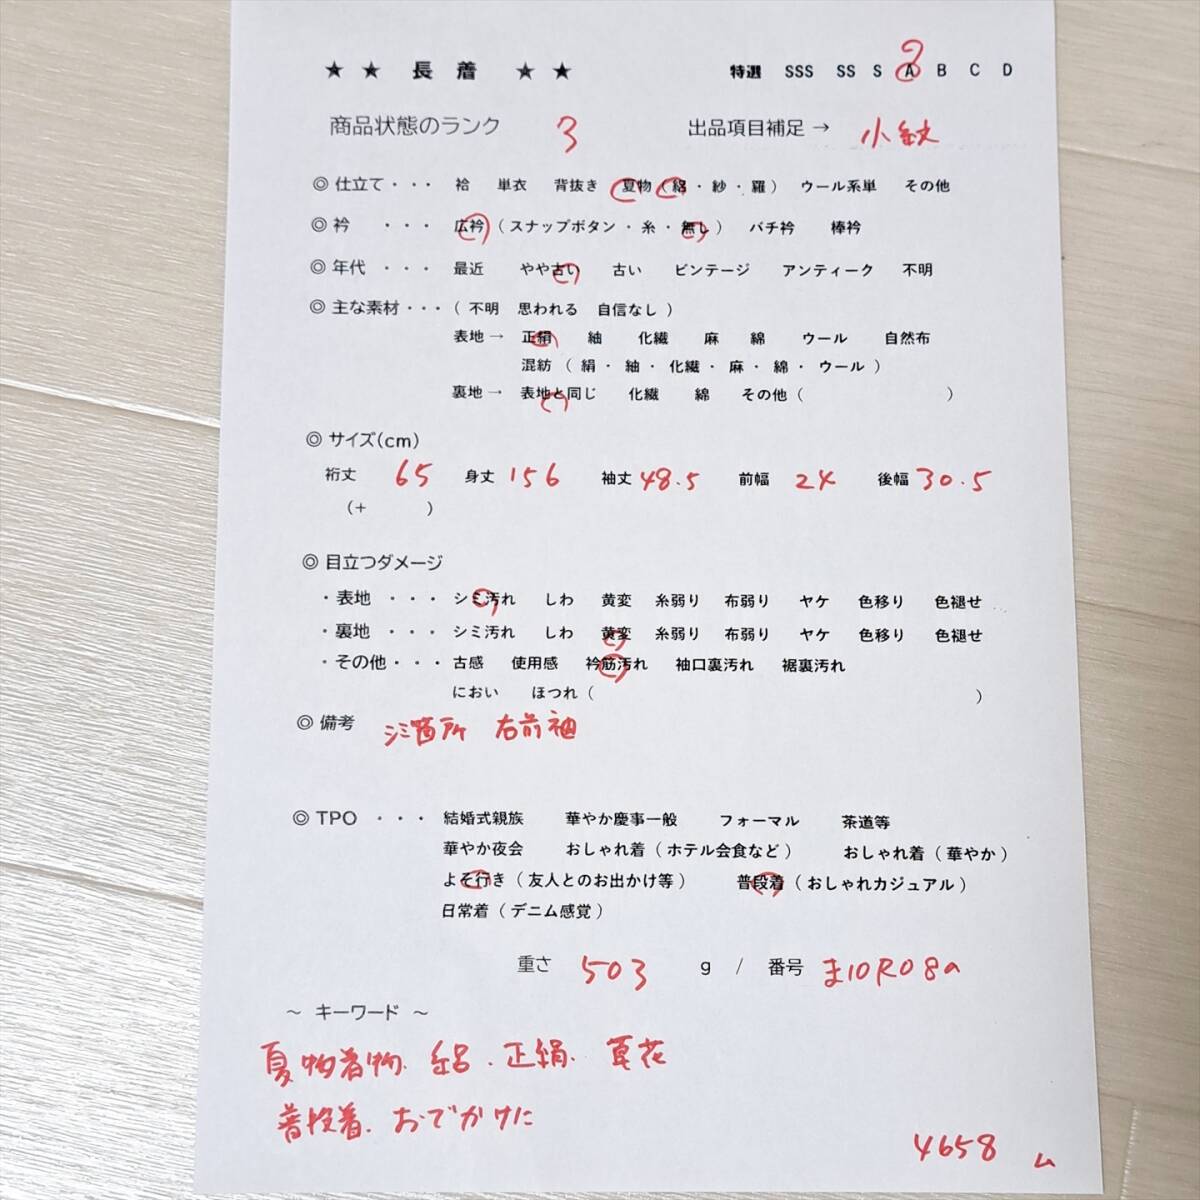 ★ ★ 長 着 ★ ★ 特選 SSS SS S A B C D
商品状態のランク 3 出品項目補足→ 小紋
◎ 仕立て・・・ 袷 単衣 背抜き 夏物（絽・紗・羅） ウール系単 その他
◎ 衿 ・・・ 広衿（スナップボタン・糸・無し） バチ衿 棒衿
◎ 年代 ・・・ 最近 やや古い 古い ビンテージ アンティーク 不明
◎ 主な素材・・・（ 不明 思われる 自信なし ）
表地→ 正絹 紬 化繊 麻 綿 ウール 自然布
混紡（ 絹・紬・化繊・麻・綿・ウール ）
裏地→ 表地と同じ 化繊 綿 その他（ ）
◎ サイズ(cm)
裄丈 65 身丈 156 袖丈 48.5 前幅 24 後幅 30.5
（+ ）
◎ 目立つダメージ
・表地 ・・・ シミ汚れ しわ 黄変 糸弱り 布弱り ヤケ 色移り 色褪せ
・裏地 ・・・ シミ汚れ しわ 黄変 糸弱り 布弱り ヤケ 色移り 色褪せ
・その他・・・ 古感 使用感 衿筋汚れ 袖口裏汚れ 裾裏汚れ
におい ほつれ（ ）
◎ 備考 シミ箇所 右前袖
◎ TPO ・・・ 結婚式親族 華やか慶事一般 フォーマル 茶道等
華やか夜会 おしゃれ着（ホテル会食など） おしゃれ着（華やか）
よそ行き（友人とのお出かけ等） 普段着（おしゃれカジュアル）
日常着（デニム感覚）
重さ 503 g / 番号 ま10R08の
～ キーワード ～
夏物着物. 絽. 正絹. 夏花
普段着. おでかけに
4658 ム